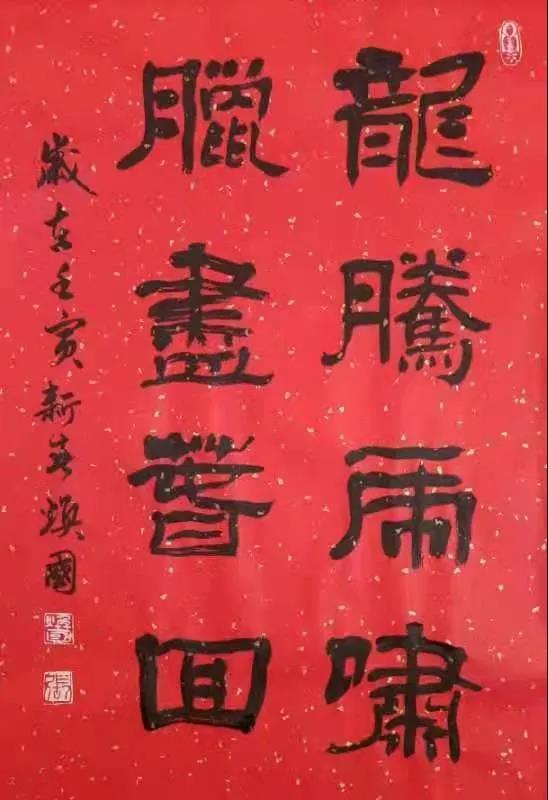 龍騰虎嘯
臘盡春回
歲在壬寅新春煥國